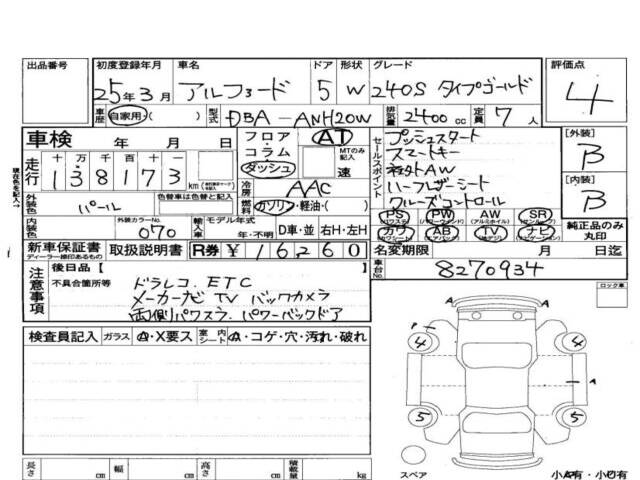 出品番号 初度登録年月 車名 ドア 形状 グレード 評価点
25年3月 アルファード 5 W 240S タイプゴールド 4
車歴 自家用・( ) 型式 DBA-ANH20W 排気量 2400cc 定員 7人
車検 年 月 日
フロア・コラム・ダッシュ AT MTのみ記入 速
走行 十万千百十一
138173 km
セールスポイント
プッシュスタート
スマートキー
社外AW
ハーフレザーシート
クルーズコントロール
[外装] B
[内装] B
冷房 AAC
外装色 パール 色替車は色替と記入
燃料 ガソリン・軽油・( )
内装色 外装カラーNo. 070 輸入車 モデル年式 年・不明 D車・並 右H・左H
PS PW AW SR
カワ AB TV ナビ
純正品のみ丸印
新車保証書 取扱説明書 R券 ¥16,260
ディーラー捺印あるもの
名変期限 月 日迄
車台No. 8270934
現在色を記入→
注意事項
後日品【
不具合箇所等
ドラレコ. ETC
メーカーナビ TV バックカメラ
両側パワスラ. パワーバックドア
ロック車
検査員記入 ガラス A・X要ス 室内シート A・コゲ・穴・汚れ・破れ
A A
P 4 4
A
5 5
スペア
長さ cm 幅 cm 高さ cm 積載量 kg
小A有・小凹有